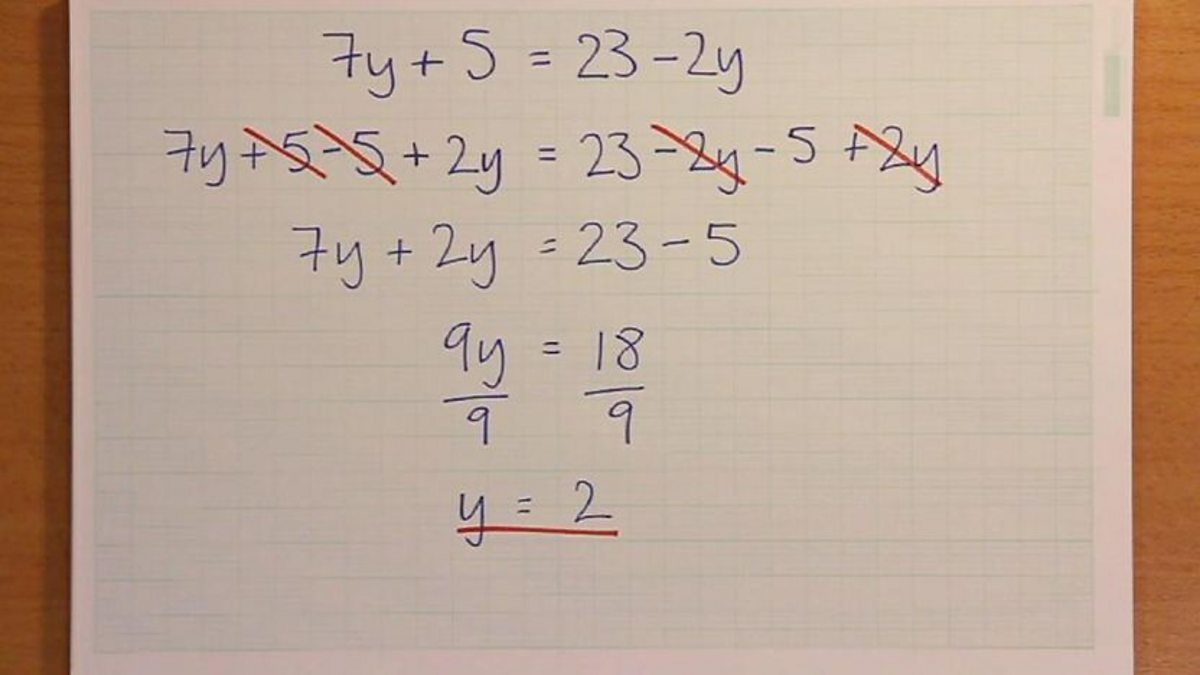 7y + 5 = 23 - 2y
7y + 5 - 5 + 2y = 23 - 2y - 5 + 2y
7y + 2y = 23 - 5
9y/9 = 18/9
y = 2